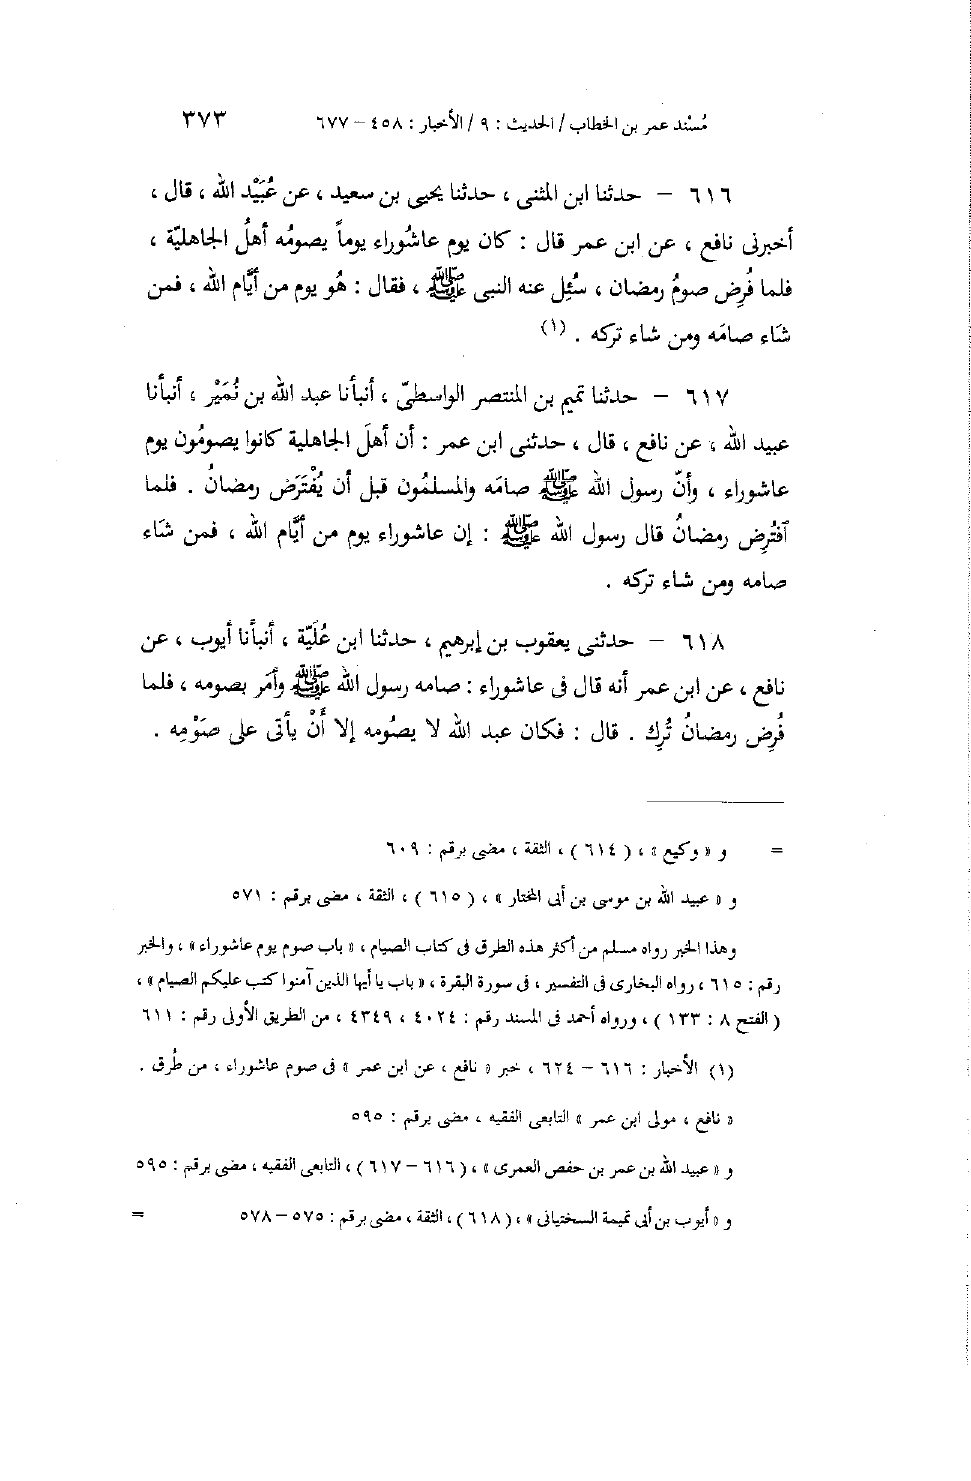 مُسْند عمر بن الخطاب / الحديث : ٩ / الأخبار : ٤٥٨ – ٦٧٧ ٣٧٣
٦١٦ – حدثنا ابن المثنى ، حدثنا يحيى بن سعيد ، عن عُبَيْد الله ، قال ،
أخبرنى نافع ، عن ابن عمر قال : كان يوم عاشُوراء يوماً يصومُه أهلُ الجاهليّة ،
فلما فُرِض صومُ رمضان ، سُئِل عنه النبى ﷺ ، فقال : هُو يوم من أيَّام الله ، فمن
شَاء صامَه ومن شاء تركه . (١)
٦١٧ – حدثنا تميم بن المنتصر الواسطىّ ، أنبأنا عبد الله بن نُمَيْر ، أنبأنا
عبيد الله ، عن نافع ، قال ، حدثنى ابن عمر : أن أهلَ الجاهلية كانوا يصومُون يوم
عاشوراء ، وأنّ رسول الله ﷺ صامَه والمسلمُون قبل أن يُفْتَرَض رمضانُ . فلما
آفتُرِض رمضانُ قال رسول الله ﷺ : إن عاشوراء يوم من أيَّام الله ، فمن شَاء
صامه ومن شاء تركه .
٦١٨ – حدثنى يعقوب بن إبرهيم ، حدثنا ابن عُلَيّة ، أنبأنا أيوب ، عن
نافع ، عن ابن عمر أنه قال فى عاشوراء : صامه رسول الله ﷺ وأمَر بصومه ، فلما
فُرِض رمضانُ تُرِك . قال : فكان عبد الله لا يصُومه إلا أَنْ يأتى على صَوْمِه .
= و « وكيع » ، ( ٦١٤ ) ، الثقة ، مضى برقم : ٦٠٩
و « عبيد الله بن موسى بن أبى المختار » ، ( ٦١٥ ) ، الثقة ، مضى برقم : ٥٧١
وهذا الخبر رواه مسلم من أكثر هذه الطرق فى كتاب الصيام ، « باب صوم يوم عاشوراء » ، والخبر
رقم : ٦١٥ ، رواه البخارى فى التفسير ، فى سورة البقرة ، « باب يا أيها الذين آمنوا كتب عليكم الصيام » ،
( الفتح ٨ : ١٣٣ ) ، ورواه أحمد فى المسند رقم : ٤٠٢٤ ، ٤٣٤٩ ، من الطريق الأولى رقم : ٦١١
(١) الأخبار : ٦١٦ – ٦٢٤ ، خبر « نافع ، عن ابن عمر » فى صوم عاشوراء ، من طُرق .
« نافع ، مولى ابن عمر » التابعى الفقيه ، مضى برقم : ٥٩٥
و « عبيد الله بن عمر بن حفص العمرى » ، ( ٦١٦ – ٦١٧ ) ، التابعى الفقيه ، مضى برقم : ٥٩٥
و « أيوب بن أبى تميمة السختيانى » ، ( ٦١٨ ) ، الثقة ، مضى برقم : ٥٧٥ – ٥٧٨ =